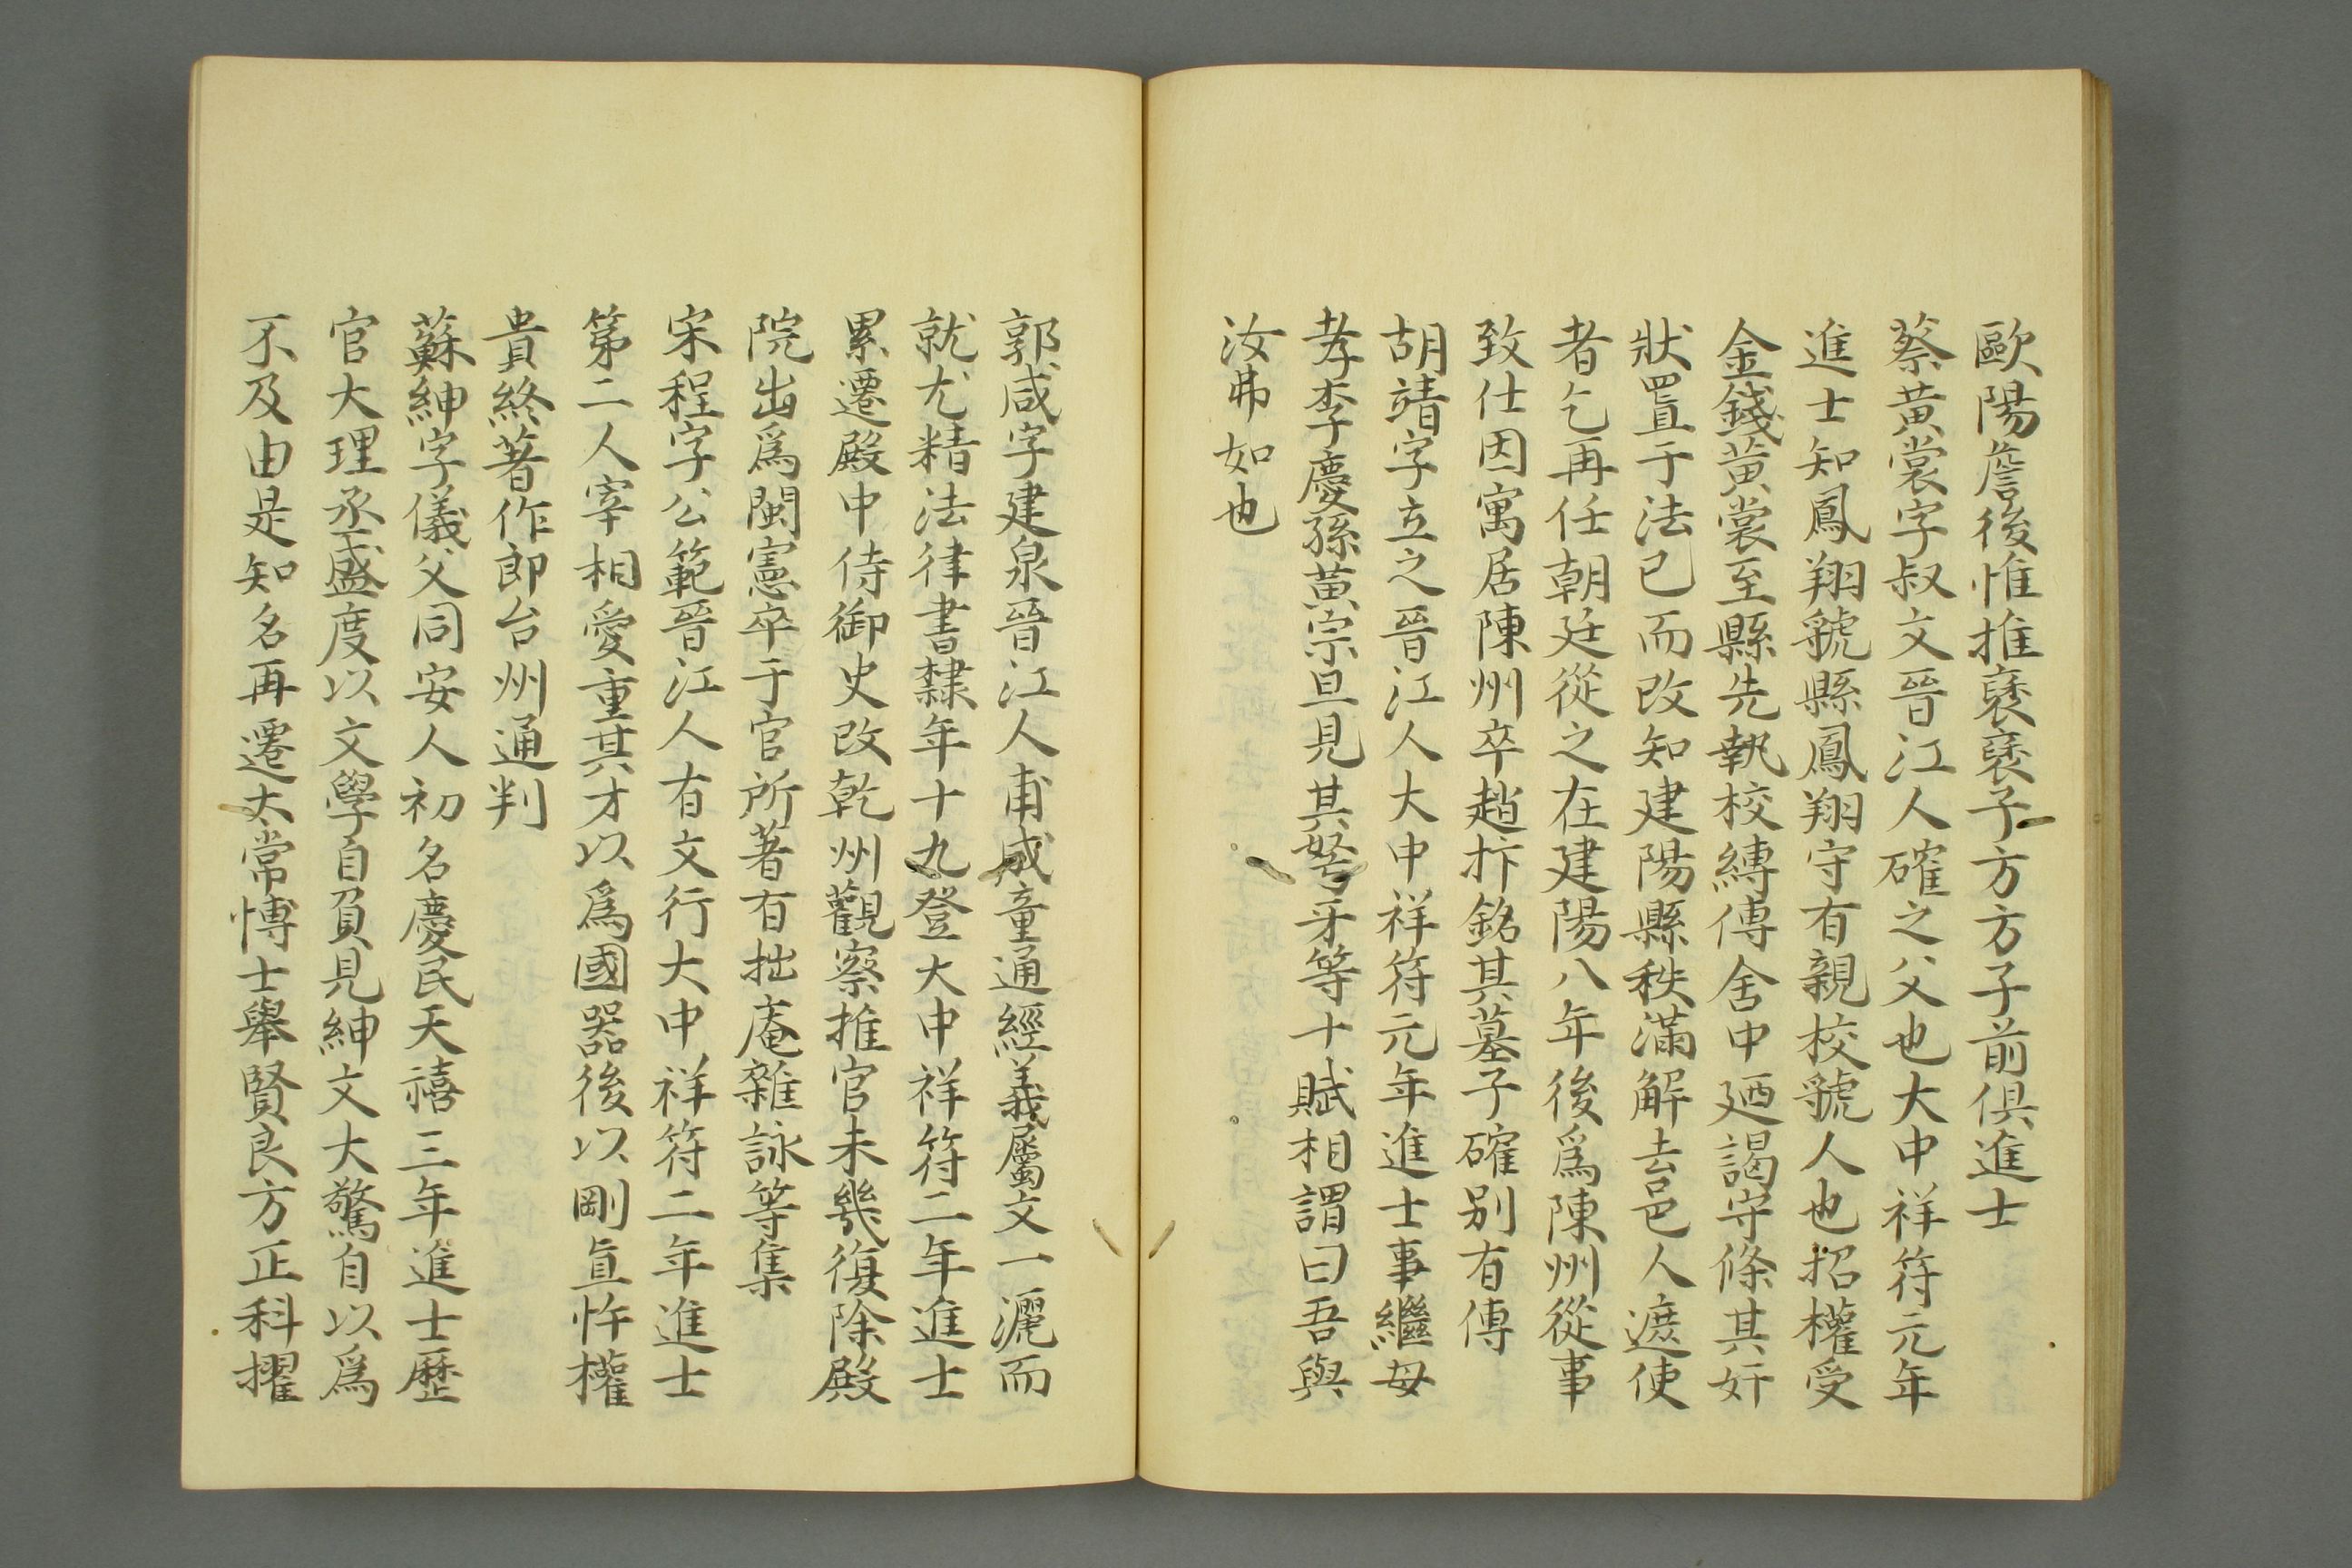 歐陽詹後惟推襃襃子方方子前俱進士
蔡黄裳字叔文晉江人確之父也大中祥符元年
進士知鳳翔虢縣鳳翔守有親校虢人也招權受
金錢黄裳至縣先執校縛傳舍中廼謁守條其奸
狀置于法已而改知建陽縣秩滿解去邑人遮使
者乞再任朝廷從之在建陽八年後爲陳州從事
致仕因寓居陳州卒趙抃銘其墓子確别有傳
胡靖字立之晉江人大中祥符元年進士事繼母
孝李慶孫黄宗旦見其弩牙等十賦相謂曰吾與
汝弗如也
郭咸字建泉晉江人甫成童通經義屬文一灑而
就尤精法律書隸年十九登大中祥符二年進士
累遷殿中侍御史改乾州觀察推官未幾復除殿
院出爲閩憲卒于官所著有拙庵雜詠等集
宋程字公範晉江人有文行大中祥符二年進士
第二人宰相愛重其才以爲國器後以剛直忤權
貴終著作郎台州通判
蘇紳字儀父同安人初名慶民天禧三年進士歷
官大理丞盛度以文學自負見紳文大驚自以爲
不及由是知名再遷太常博士舉賢良方正科擢